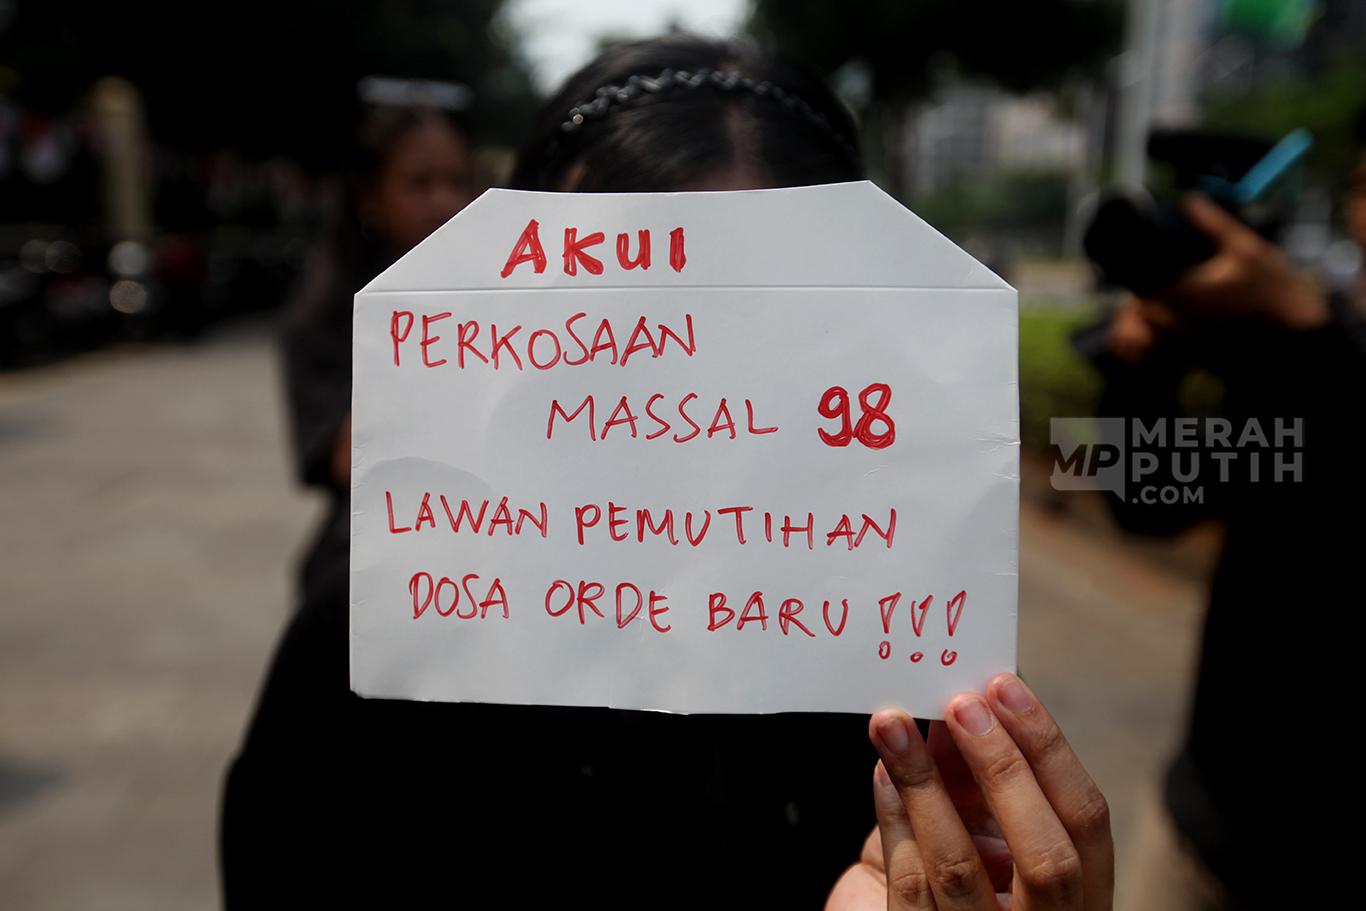 AKUI
PERKOSAAN
MASSAL 98
LAWAN PEMUTIHAN
DOSA ORDE BARU !!!
MP MERAH
PUTIH
.COM